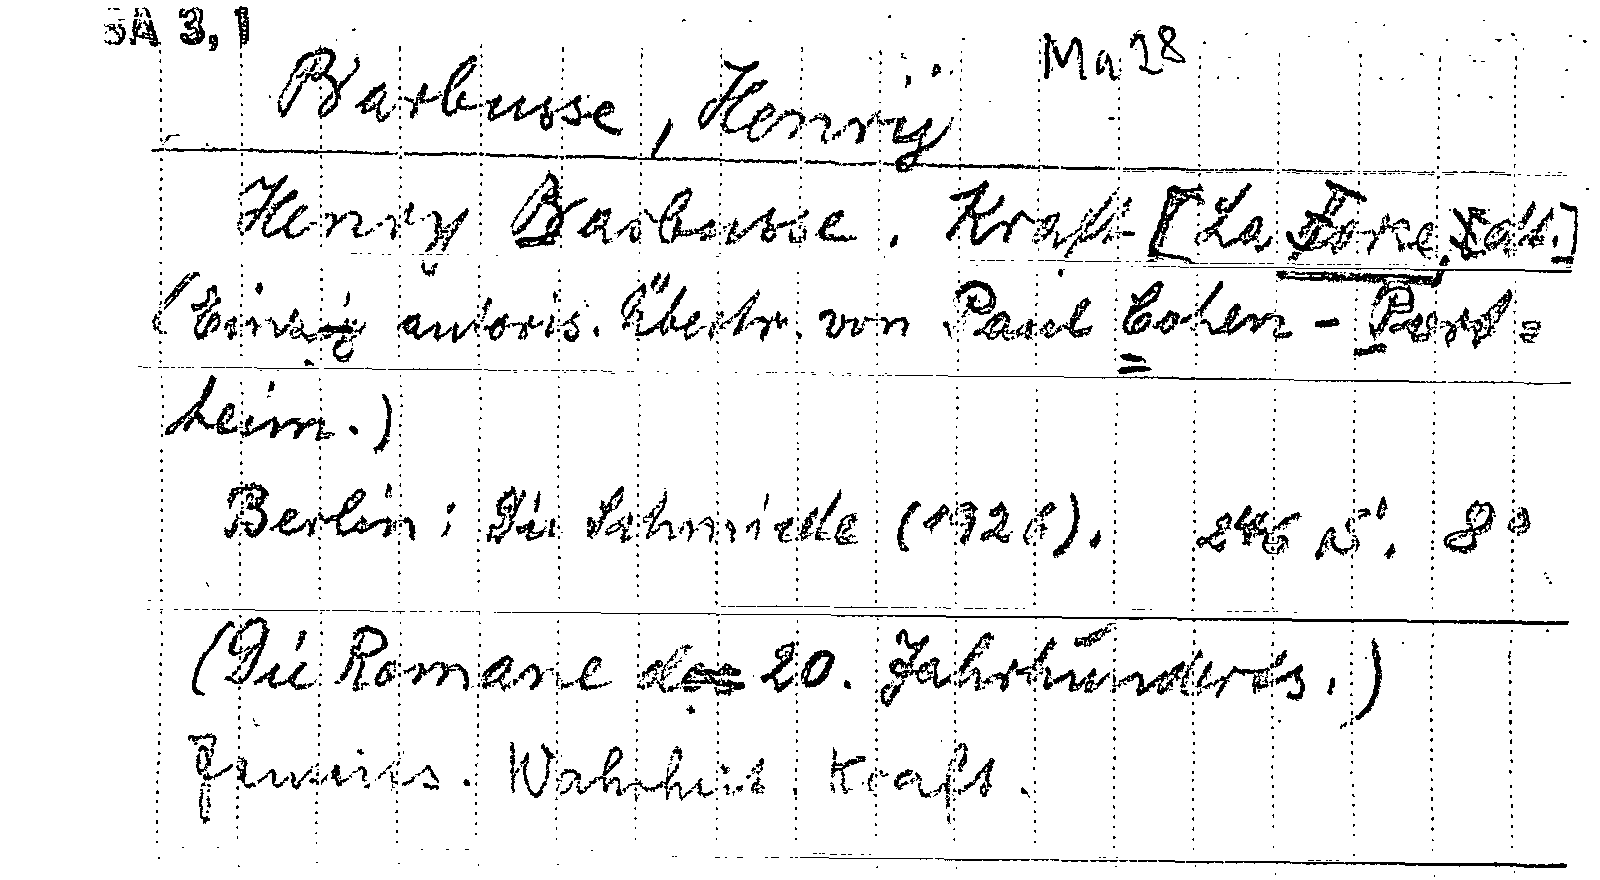 SA 3,1
Ma 28
Barbusse, Henry
Henry Barbusse. Kraft [La Force, dt.]
(Einzig autoris. Übertr. von Paul Cohen-Port=
heim.)
Berlin: Die Schmiede (1926). 246 S. 8°
(Die Romane des 20. Jahrhunderts.)
Jenseits. Wahrheit. Kraft.